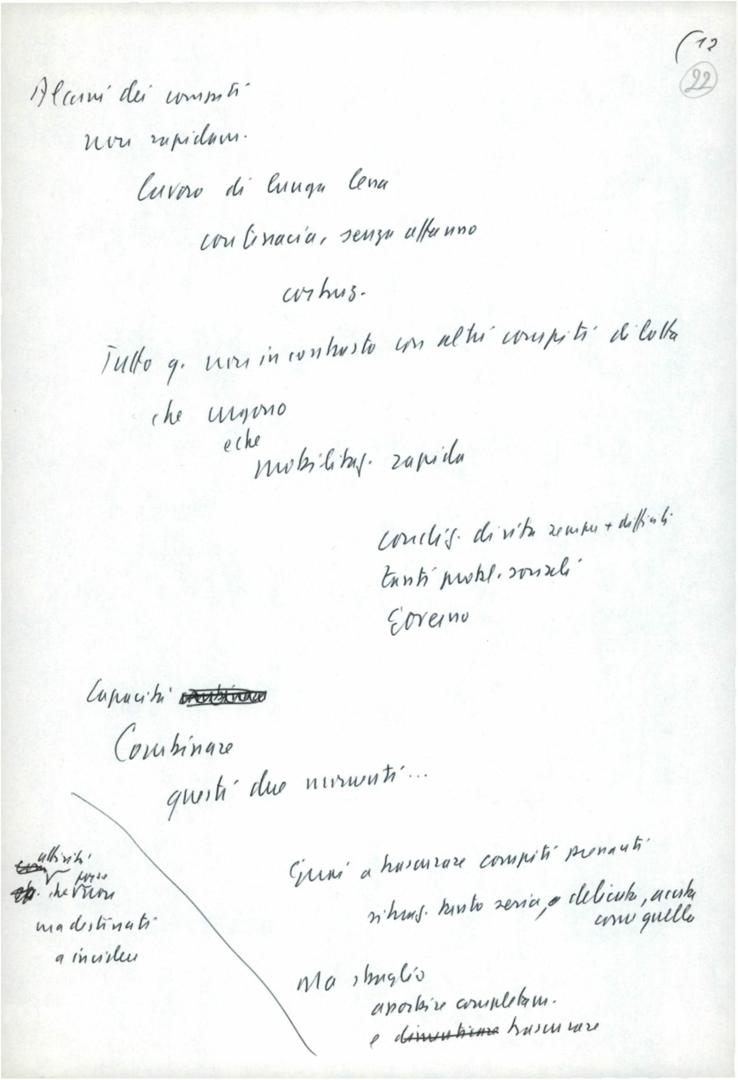 (12
22
Alcuni dei compiti
non rapidam.
lavoro di lunga lena
con tenacia, senza affanno
costruz.
Tutto q. non in contrasto con altri compiti di lotta
che urgono
e che
mobilitaz. rapida
condiz. di vita sempre + difficili
tanti probl. sociali
Governo
Capacità combinare
Combinare
questi due momenti...
attività
che forse non
ma destinati
a incidere
Guai a trascurare compiti
situaz. tanto seria, e delicata, acuta
come quella
Ma sbaglio
assorbire completam.
e dimenticare trascurare